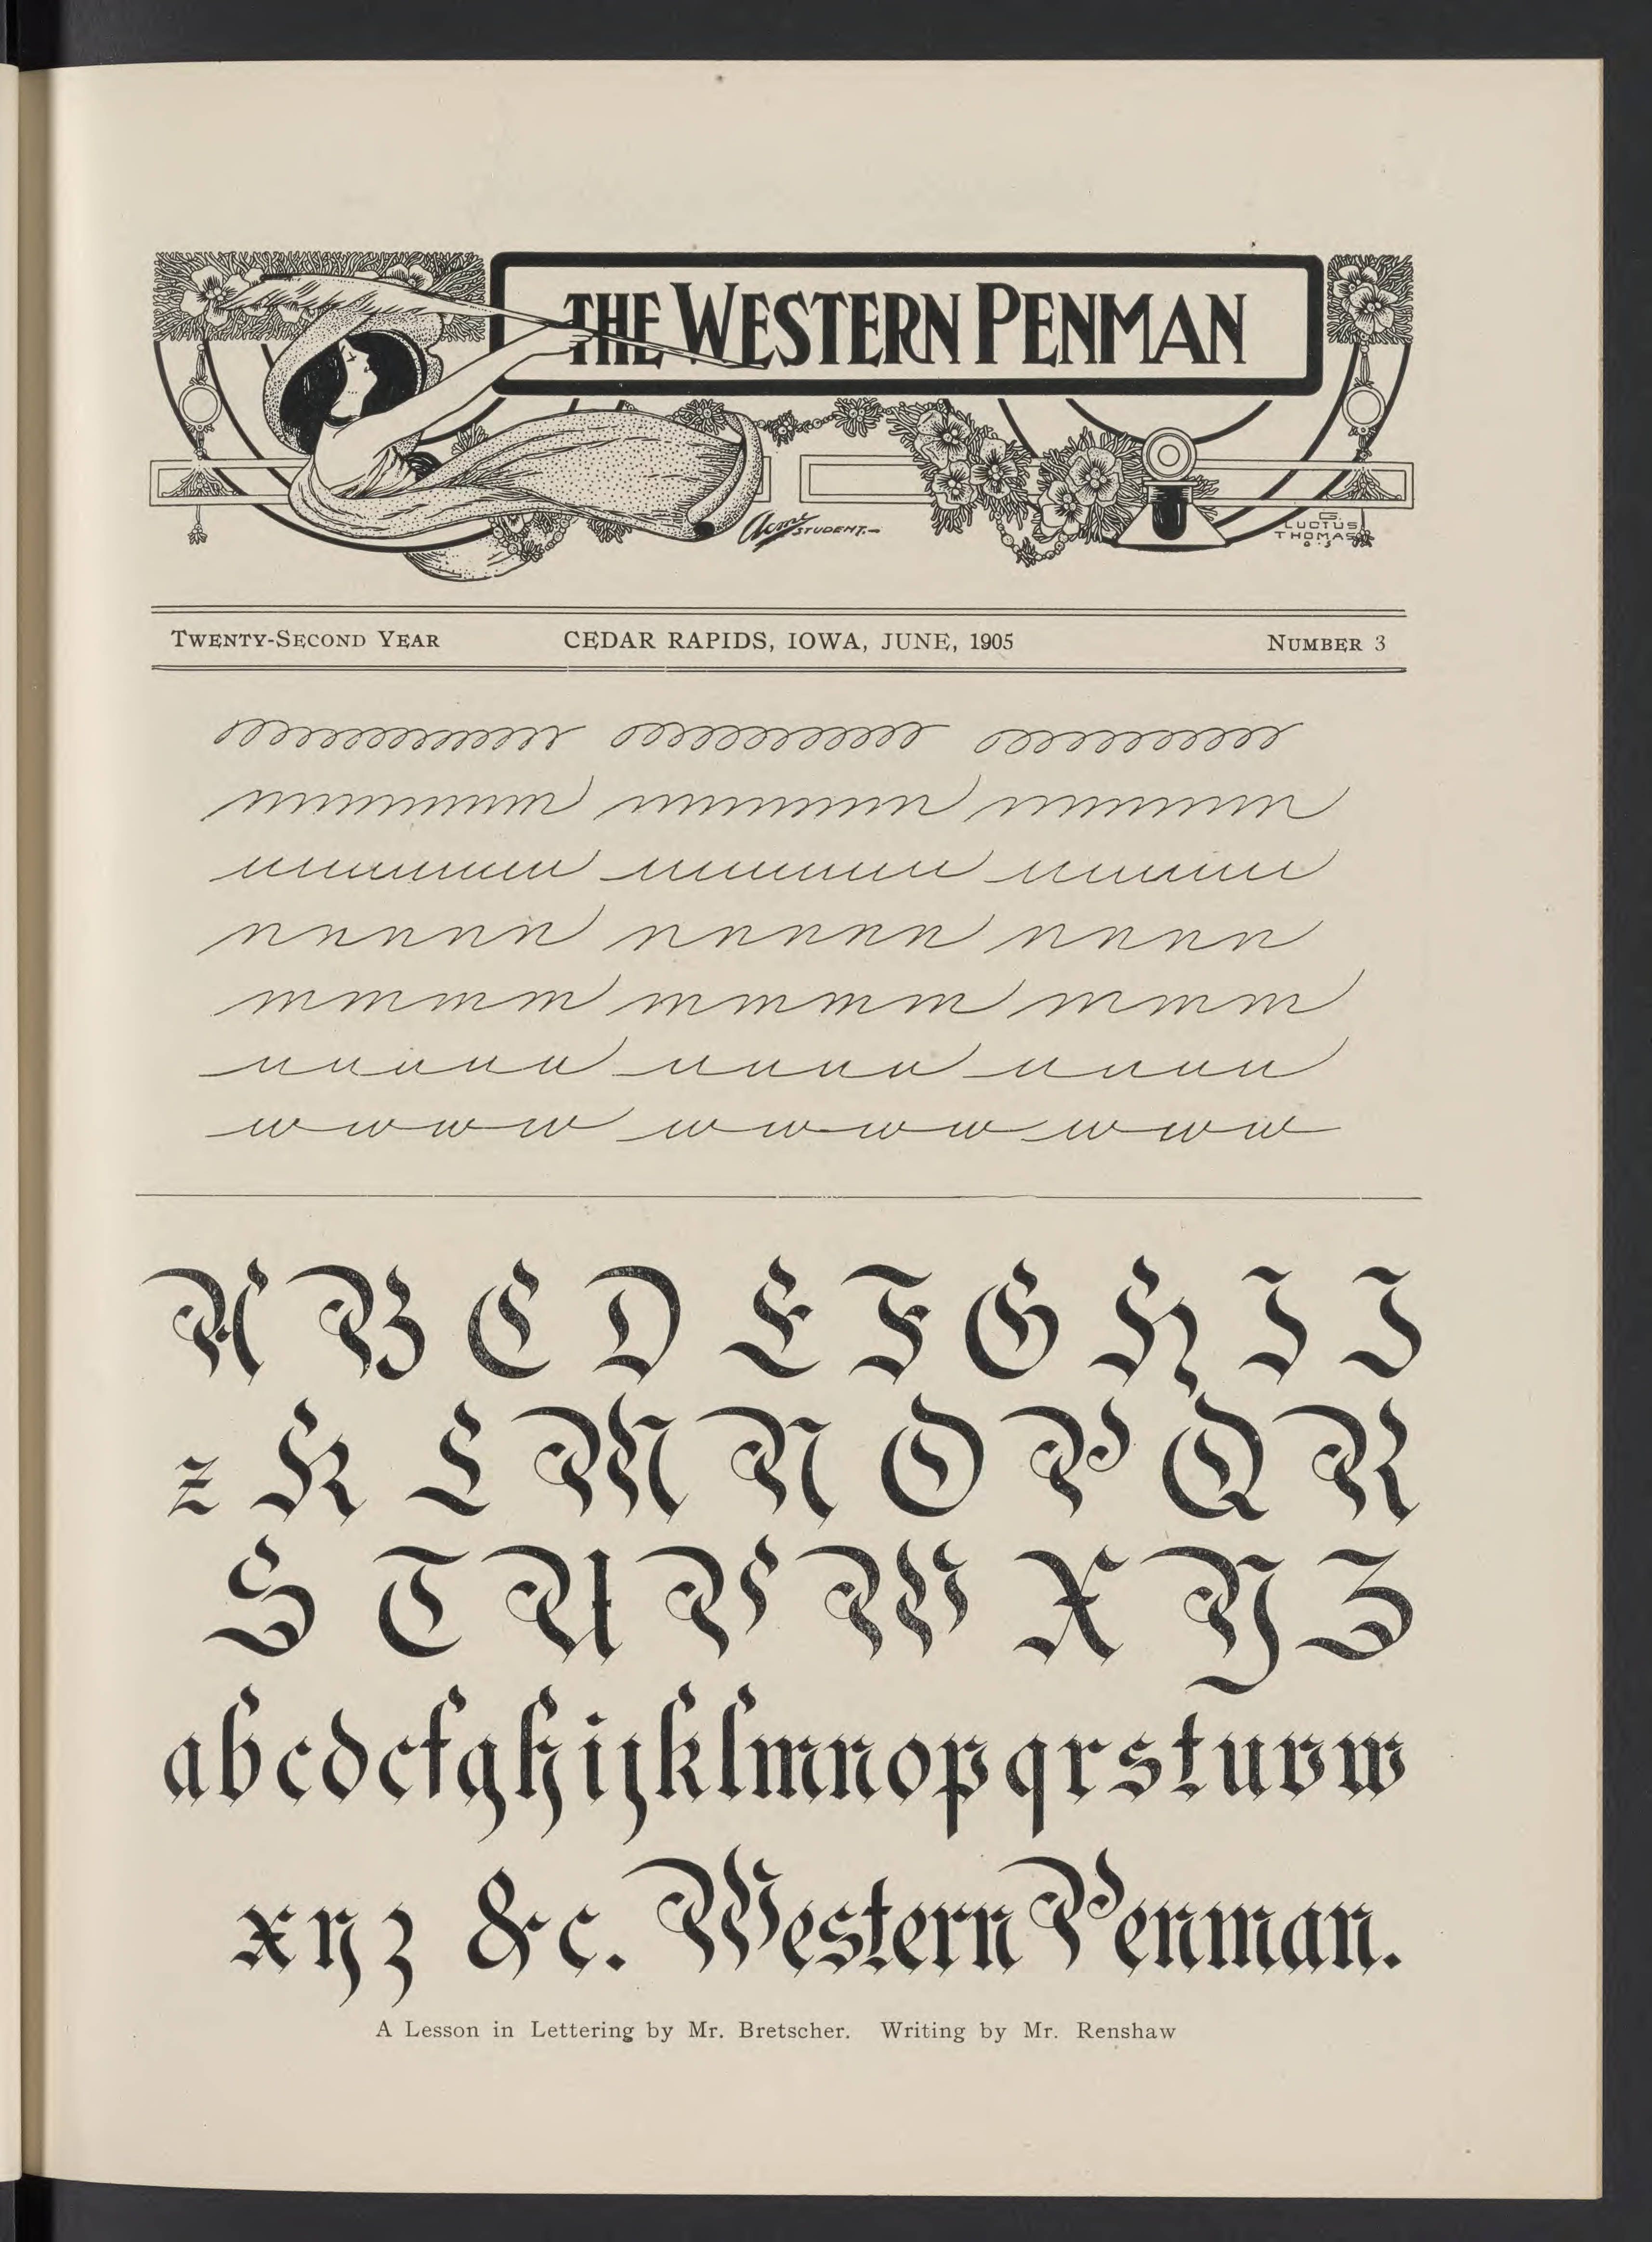 THE WESTERN PENMAN
Acme STUDENT.
G.
LUCTUS
THOMAS
05
TWENTY-SECOND YEAR CEDAR RAPIDS, IOWA, JUNE, 1905 NUMBER 3
mmmmmmm mmmmmm mmmmmm
uuuuuuuu uuuuuuu uuuuuu
n n n n n n n n n n n n n n
m m m m m m m m m m m m
u u u u u u u u u u u u u u
w w w w w w w w w w w
A B C D E F G H I J
z K L M N O P Q R
S T U V W X Y Z
a b c d e f g h i j k l m n o p q r s t u v w
x y z &c. Western Penman.
A Lesson in Lettering by Mr. Bretscher. Writing by Mr. Renshaw